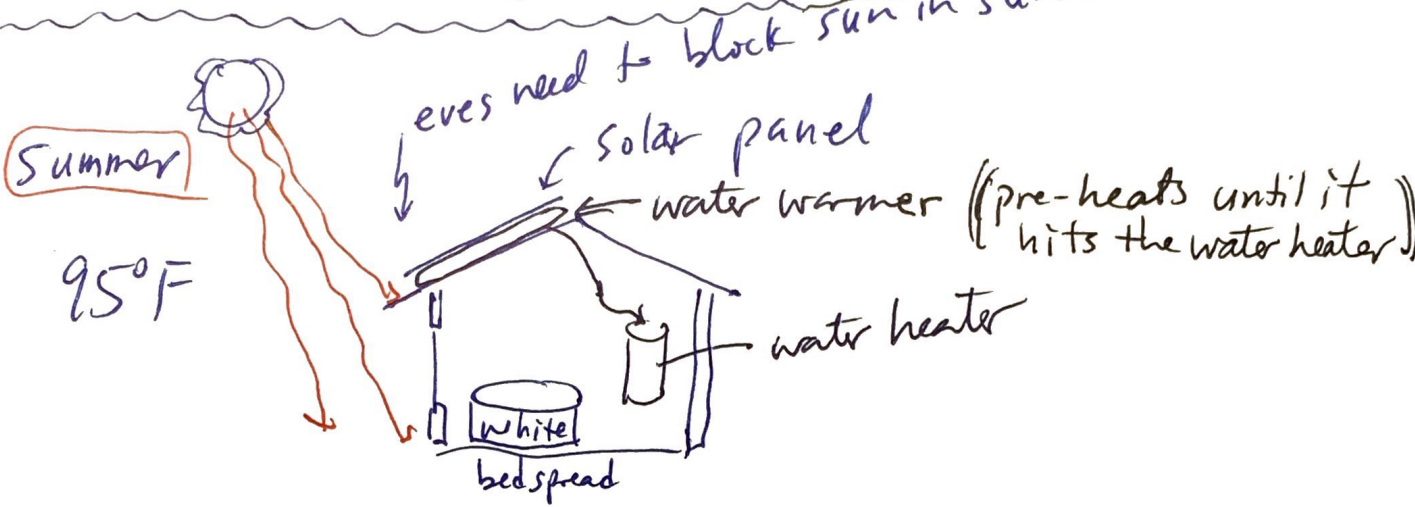 eves need to block sun in
solar panel
Summer
water warmer ((pre-heats until it
hits the water heater))
95°F
water heater
white
bedspread